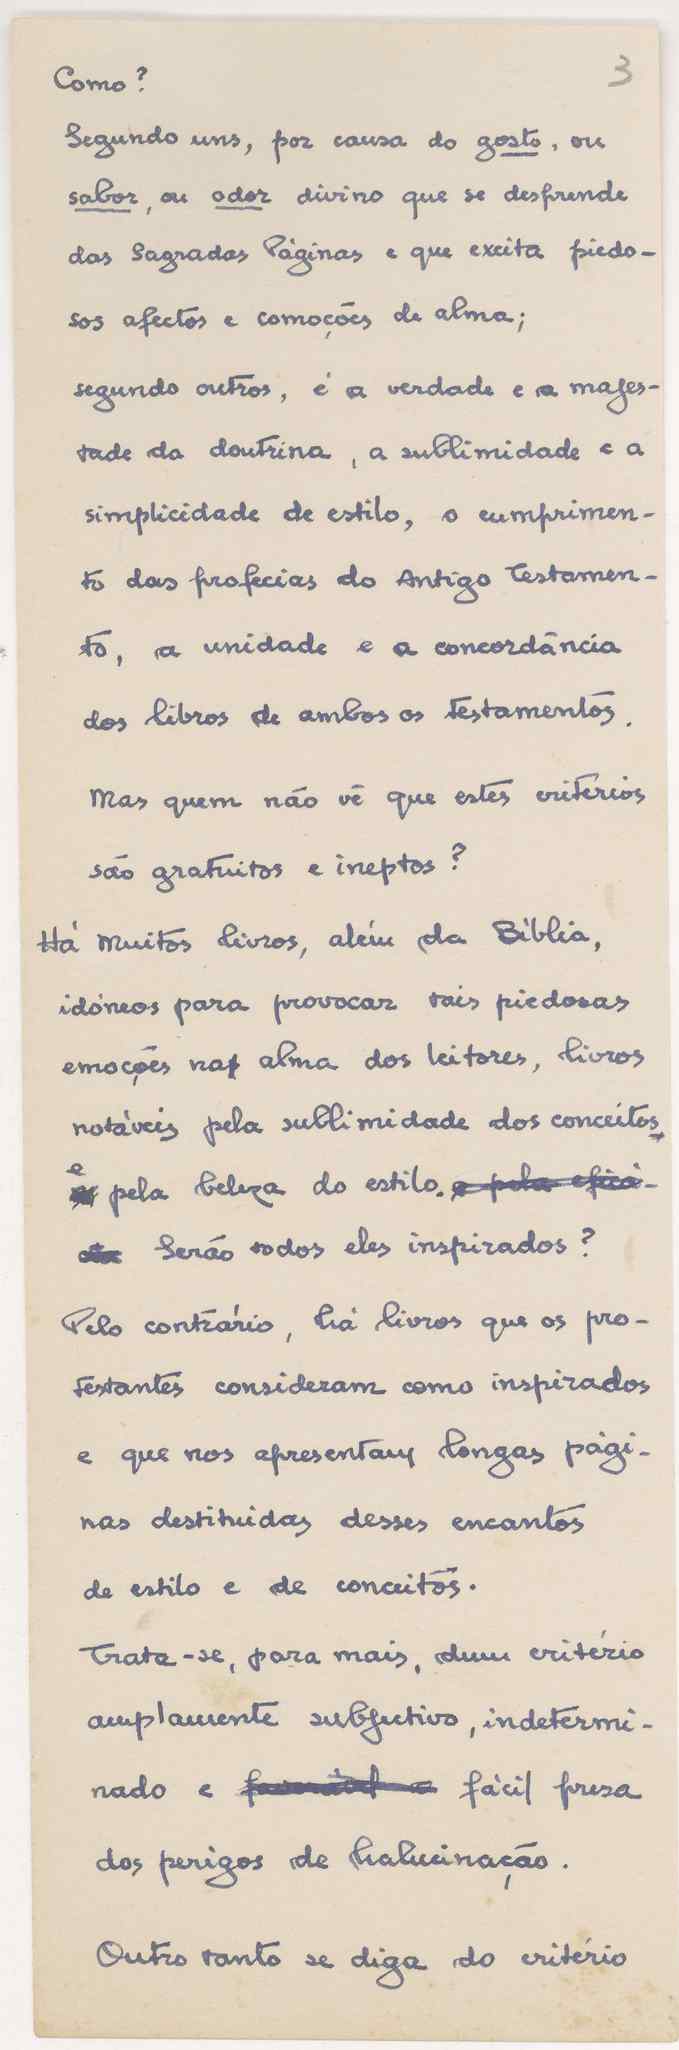 3
Como?
Segundo uns, por causa do gosto, ou
sabor, ou odor divino que se desprende
das Sagradas Páginas e que excita piedo-
sos afectos e comoções de alma;
segundo outros, é a verdade e a majes-
tade da doutrina, a sublimidade e a
simplicidade de estilo, o cumprimen-
to das profecias do Antigo Testamen-
to, a unidade e a concordância
dos libros de ambos os Testamentos.
Mas quem não vê que estes critérios
são gratuitos e ineptos?
Há muitos livros, além da Bíblia,
idóneos para provocar tais piedosas
emoções na alma dos leitores, livros
notáveis pela sublimidade dos conceitos
e pela beleza do estilo. e pela eficá-
cia Serão todos eles inspirados?
Pelo contrário, há livros que os pro-
testantes consideram como inspirados
e que nos apresentam longas pági-
nas destituidas desses encantos
de estilo e de conceitos.
Trata-se, para mais, dum critério
amplamente subjectivo, indetermi-
nado e fácil presa
dos perigos de halucinação.
Outro tanto se diga do critério